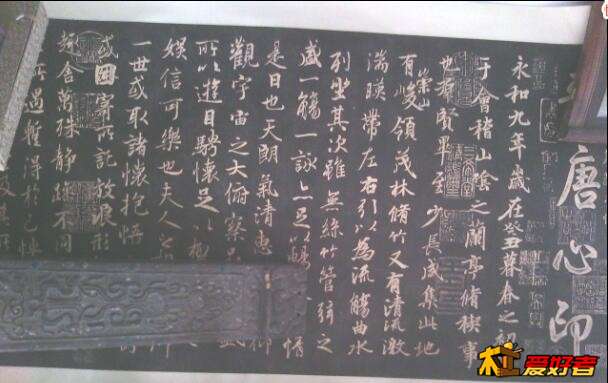 唐心印
永和九年歲在癸丑暮春之初
于會稽山陰之蘭亭脩稧事
也羣賢畢至少長咸集此地
有崇山峻領茂林脩竹又有清流激
湍暎帶左右引以為流觴曲水
列坐其次雖無絲竹管弦之
盛一觴一詠亦足以暢 情
是日也天朗氣清惠 仰
觀宇宙之大俯察品 盛
所以遊目騁懷足以極
娛信可樂也夫人之
一世或取諸懷抱悟
或因寄所託放浪形
趣舍萬殊静躁不同
所遇蹔得於己怏
木工爱好者